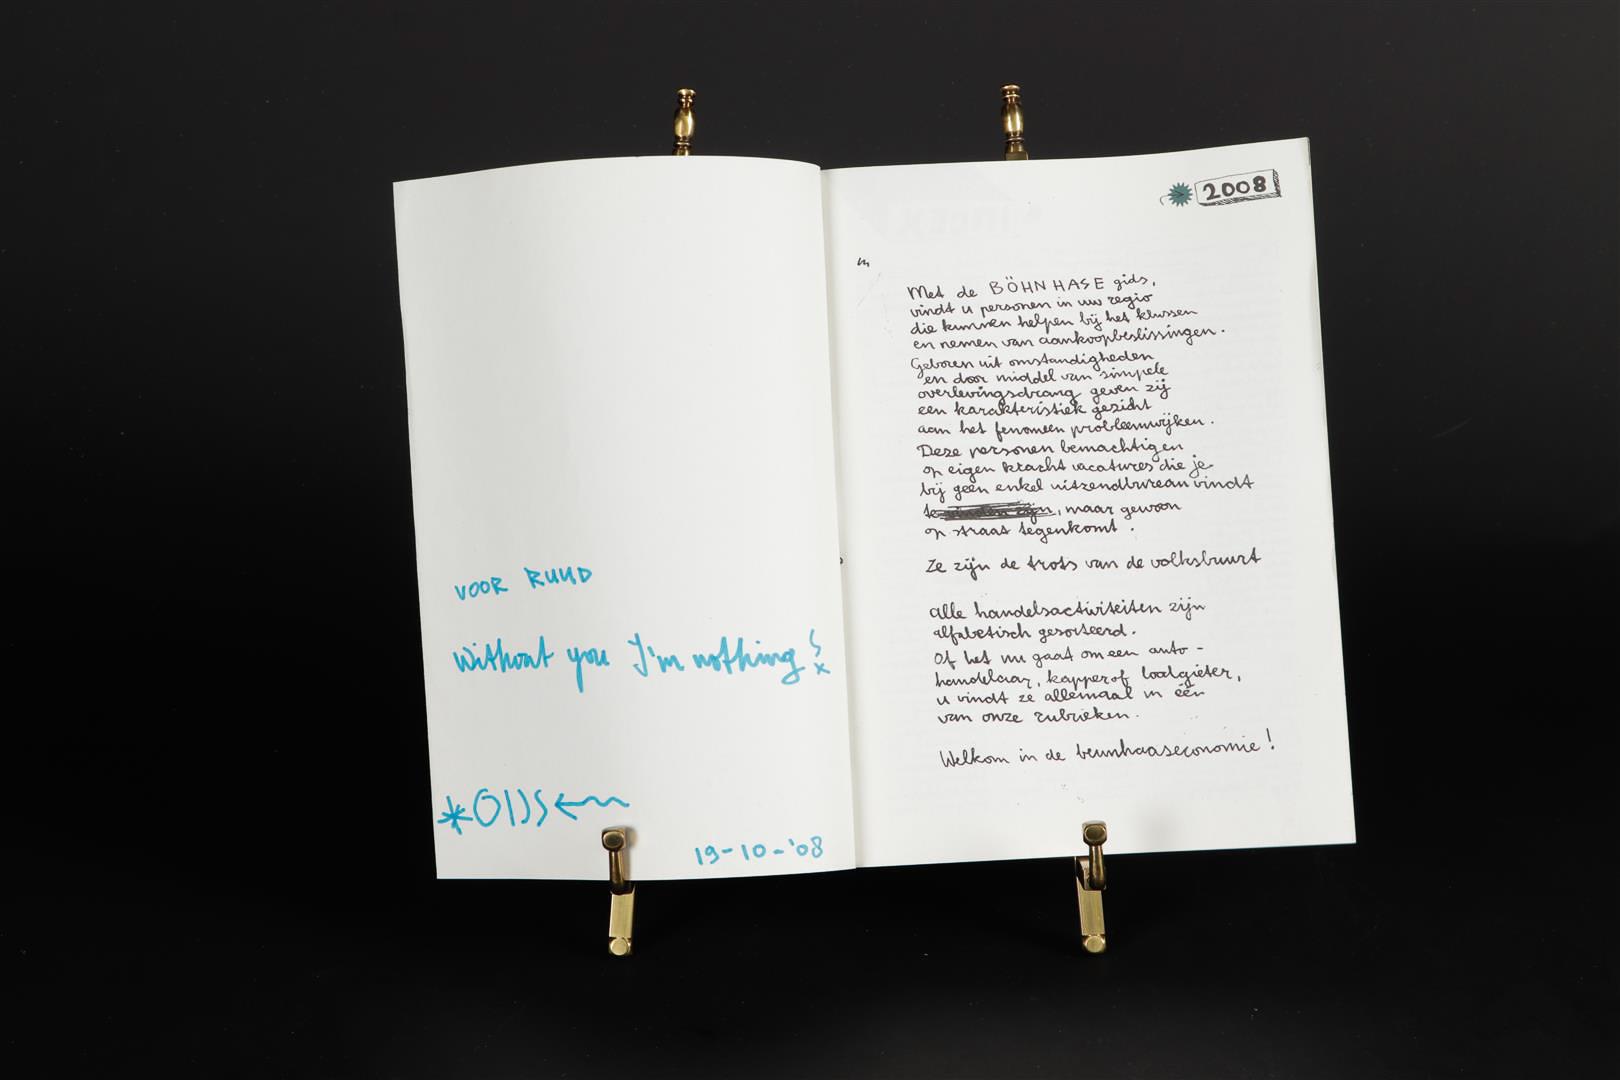 VOOR RUUD
Without you I'm nothing!
19-10-'08
2008
Met de BÖHNHASE gids,
vindt u personen in uw regio
die kunnen helpen bij het klussen
en nemen van aankoopbeslissingen.
Geboren uit omstandigheden
en door middel van simpele
overlevingsdrang geven zij
een karakteristiek gezicht
aan het fenomeen probleemwijken.
Deze personen bemachtigen
op eigen kracht vacatures die je
bij geen enkel uitzendbureau vindt
, maar gewoon
op straat tegenkomt.
Ze zijn de trots van de volksbuurt
Alle handelsactiviteiten zijn
alfabetisch gesorteerd.
Of het nu gaat om een auto-
handelaar, kapper of loodgieter,
u vindt ze allemaal in één
van onze rubrieken.
Welkom in de beunhaaseconomie!